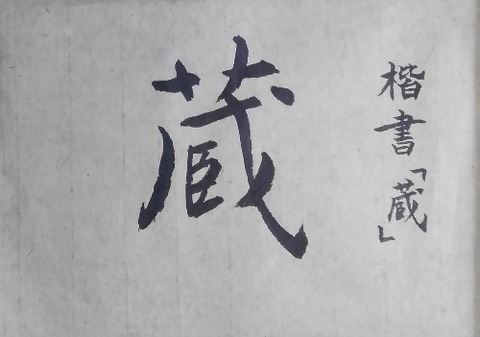 楷書「蔵」
蔵